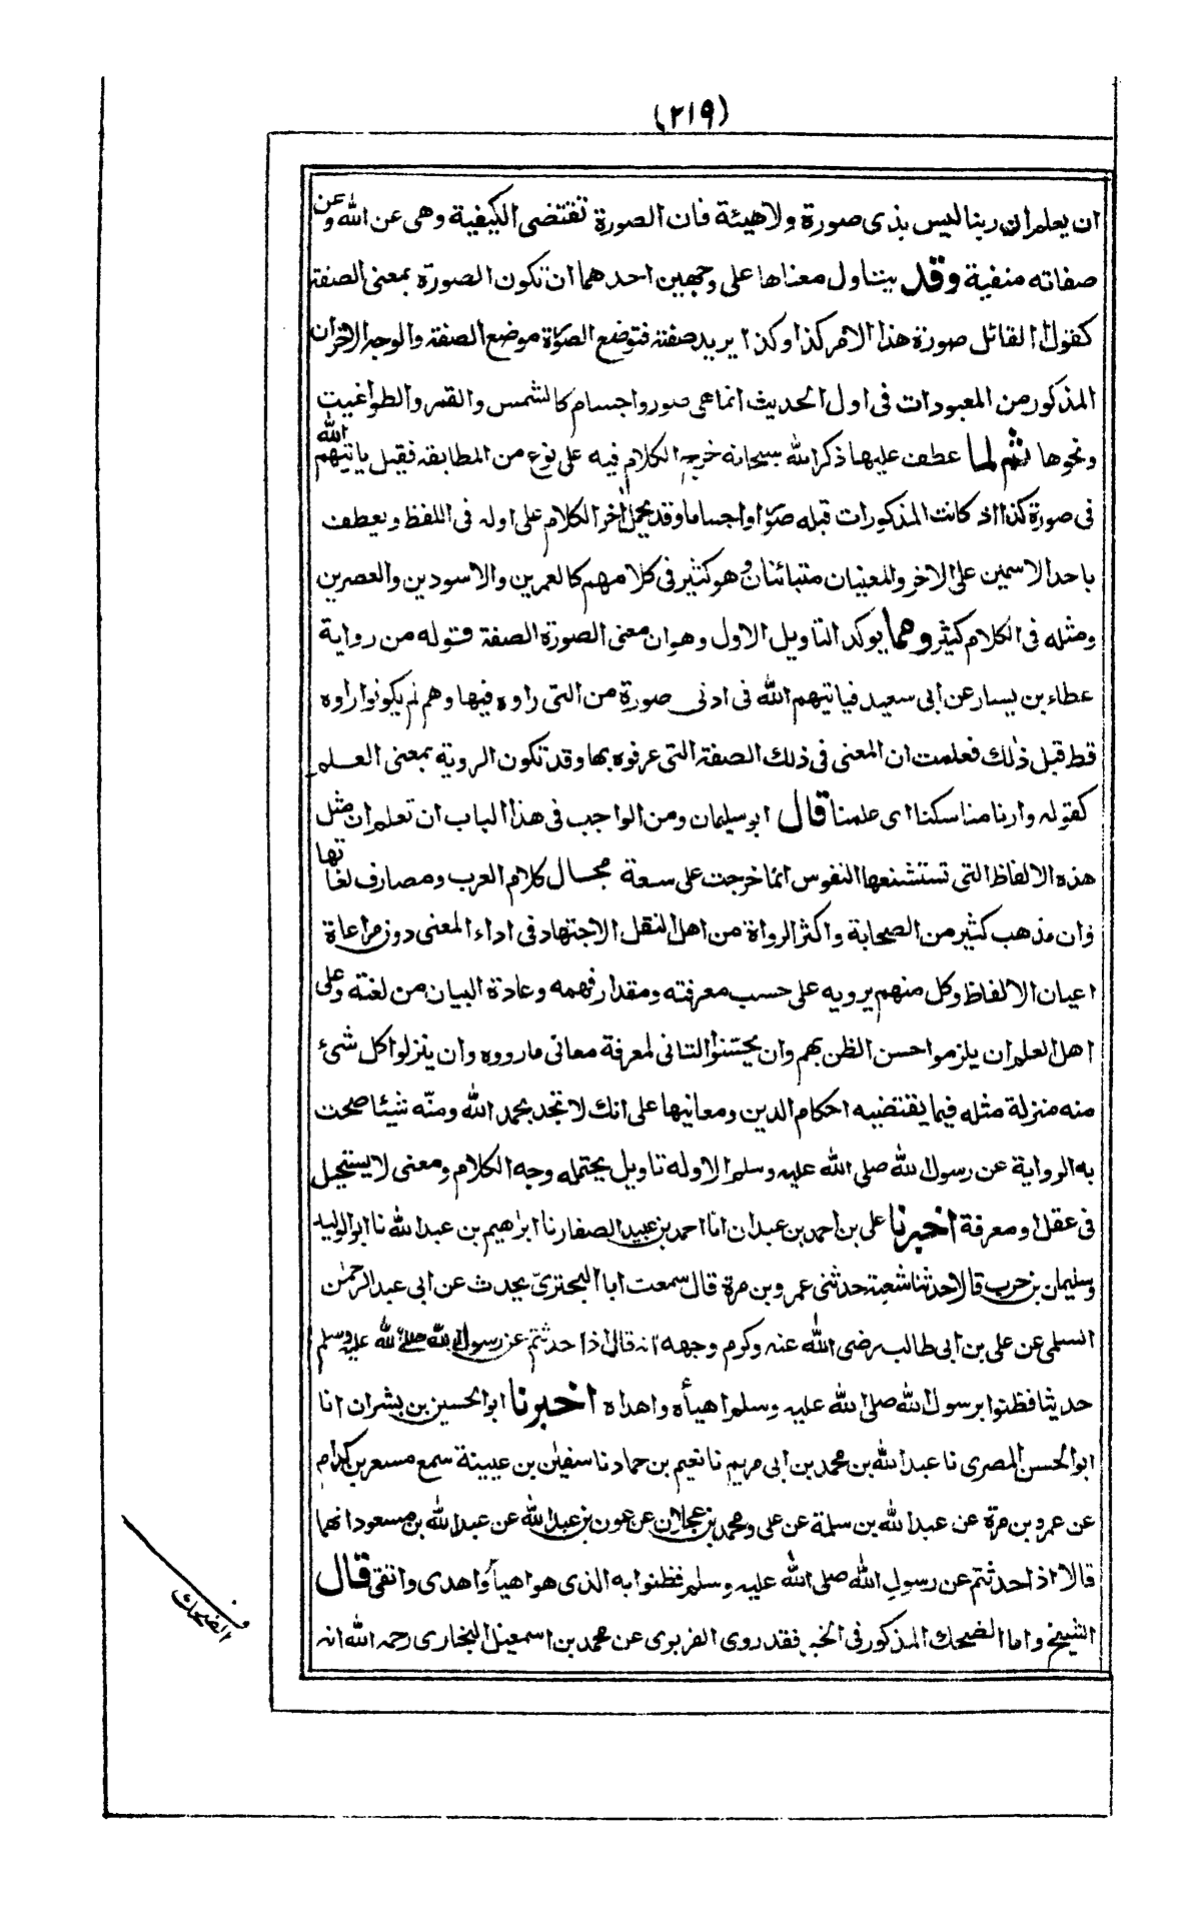 (٢١٩)
ان يعلم ان ربنا ليس بذى صورة ولا هيئة فان الصورة تقتضى الكيفية وهى عن الله وعن
صفاته منفية وقد يتناول معناها على وجهين احدهما ان تكون الصورة بمعنى الصفة
كقول القائل صورة هذا الامر كذا وكذا يريد صفته فتوضع الصورة موضع الصفة والوجه الاخر ان
المذكور من المعبودات فى اول الحديث انما هى صور واجسام كالشمس والقمر والطواغيت
ونحوها ثم لما عطف عليها ذكر الله سبحانه خرج الكلام فيه على نوع من المطابقة فقيل ياتيهم الله
فى صورة كذا اذ كانت المذكورات قبله صورا واجساما وقد يحمل آخر الكلام على اوله فى اللفظ ويعطف
باحد الاسمين على الاخر والمعنيان متبائنان وهو كثير فى كلامهم كالعمرين والاسودين والعصرين
ومثله فى الكلام كثير ومما يوكد التاويل الاول وهو ان معنى الصورة الصفة قوله من رواية
عطاء بن يسار عن ابى سعيد فياتيهم الله فى ادنى صورة من التى راوه فيها وهم لم يكونوا راوه
قط قبل ذٰلك فعلمت ان المعنى فى ذلك الصفة التى عرفوه بها وقد تكون الروية بمعنى العلم
كقوله وارنا مناسكنا اى علمنا قال ابو سليمان ومن الواجب فى هذا الباب ان تعلم ان مثل
هذه الالفاظ التى تستشنعها النفوس انما خرجت على سعة مجال كلام العرب ومصارف لغاتها
وان مذهب كثير من الصحابة واكثر الرواة من اهل النقل الاجتهاد فى اداء المعنى دون مراعاة
اعيان الالفاظ وكل منهم يرويه على حسب معرفته ومقدار فهمه وعادة البيان من لغته وعلى
اهل العلم ان يلزموا حسن الظن بهم وان يحسنوا التانى لمعرفة معانى ما رووه وان ينزلوا كل شئ
منه منزلة مثله فيما يقتضيه احكام الدين ومعانيها على انك لا تجد بحمد الله ومنّه شيئا صحت
به الرواية عن رسول الله صلى الله عليه وسلم الا وله تاويل يحتمله وجه الكلام ومعنى لا يستحيل
فى عقل او معرفة اخبرنا على بن احمد بن عبدان انا احمد بن عبيد الصفار نا ابراهيم بن عبد الله نا ابو الوليد
وسليمان بن حرب قالا حدثنا شعبة حدثنى عمرو بن مرة قال سمعت ابا البخترىّ يحدث عن ابى عبد الرحمٰن
السلمى عن على بن ابى طالب رضى الله عنه وكرم وجهه انه قال اذا حدثتم عن رسول الله صلى الله عليه وسلم
حديثا فظنوا برسول الله صلى الله عليه وسلم اهيأه واهداه اخبرنا ابو الحسين بن بشران انا
ابو الحسن المصرى نا عبد الله بن محمد بن ابى مريم نا نعيم بن حماد نا سفيٰن بن عيينة سمع مسعر بن كدام
عن عمرو بن مرة عن عبد الله بن سلمة عن على ومحمد بن عجلان عن عون بن عبد الله عن عبد الله بن مسعود انهما
قالا اذا حدثتم عن رسول الله صلى الله عليه وسلم فظنوا به الذى هو اهيأ واهدى واتقى قال
الشيخ واما الضحك المذكور فى الخبر فقد روى الفربرى عن محمد بن اسمعيل البخارى رحمه الله انه
الضحك